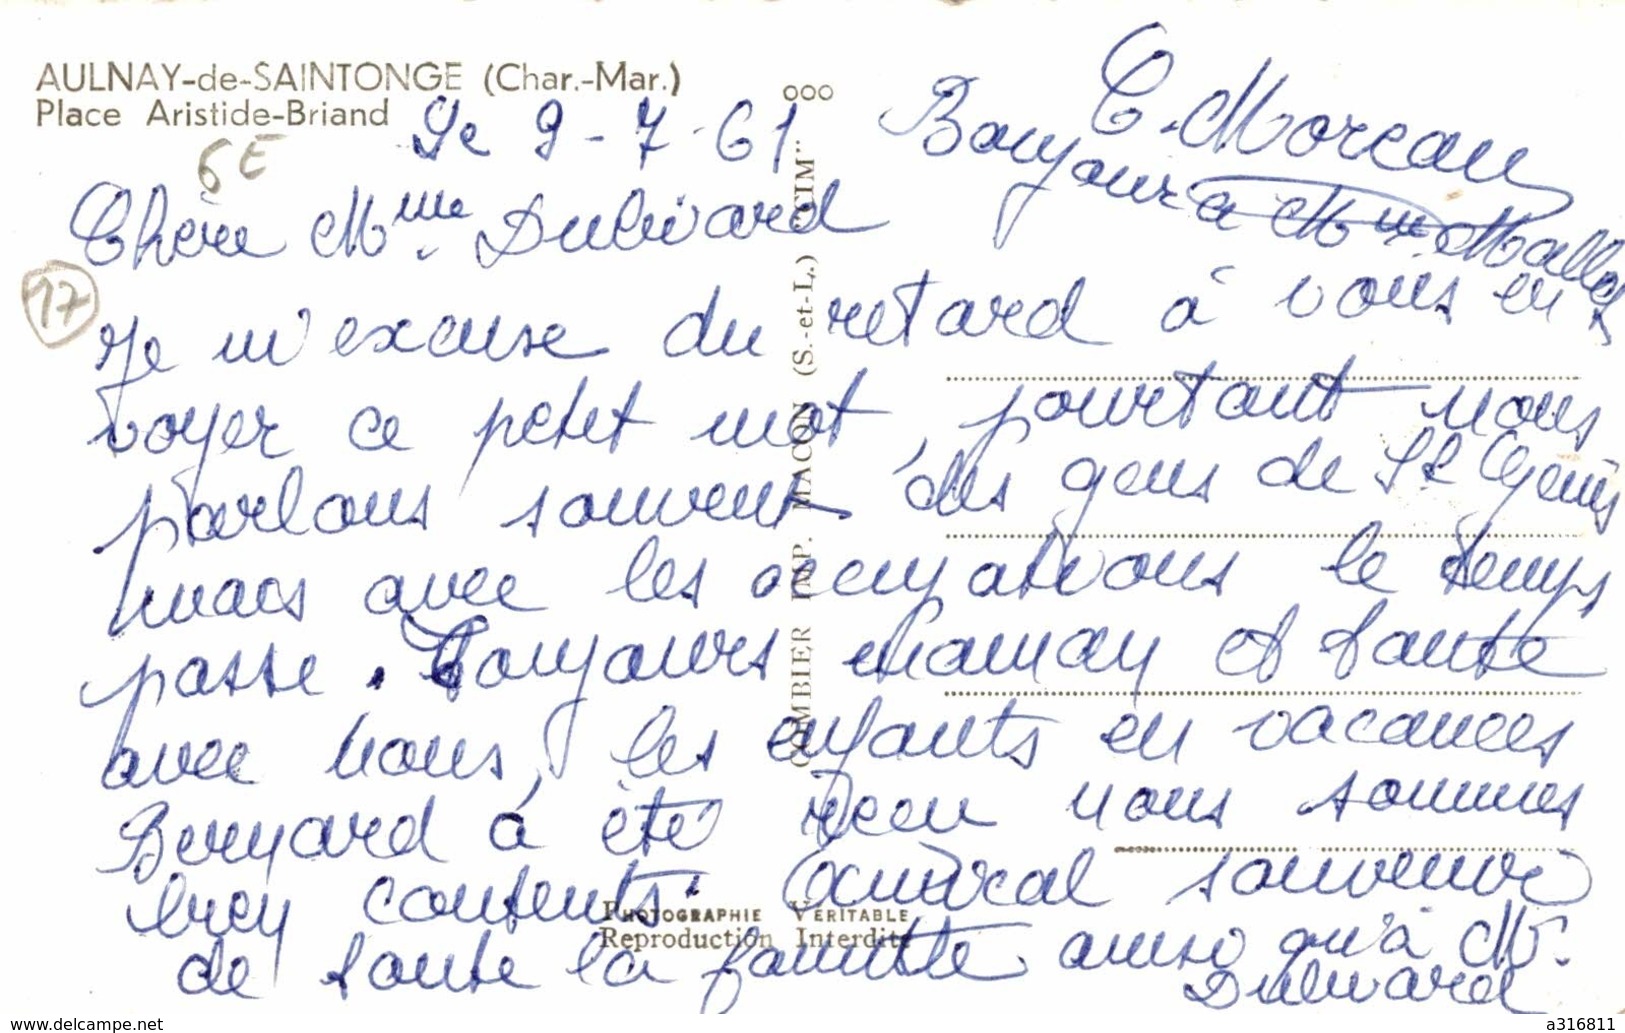 AULNAY-de-SAINTONGE (Char.-Mar.)
Place Aristide-Briand
6E
17
Le 9-7-61
Chère Mme Dulivard
Je m'excuse du retard à vous en
voyer ce petit mot, pourtant nous
parlons souvent des gens de St Genis
mais avec les occupations le temps
passe. Toujours maman et tante
avec nous, les enfants en vacances
Bernard à été reçu nous sommes
bien contents. Amical souvenir
de toute la famille ainsi qu'à Mr.
Dulivard
C. Moreau
Bonjour à Mme Mallet
COMBIER IMP. MACON (S.-et-L.) "CIM"
PHOTOGRAPHIE VÉRITABLE
Reproduction Interdite
www.delcampe.net
a316811